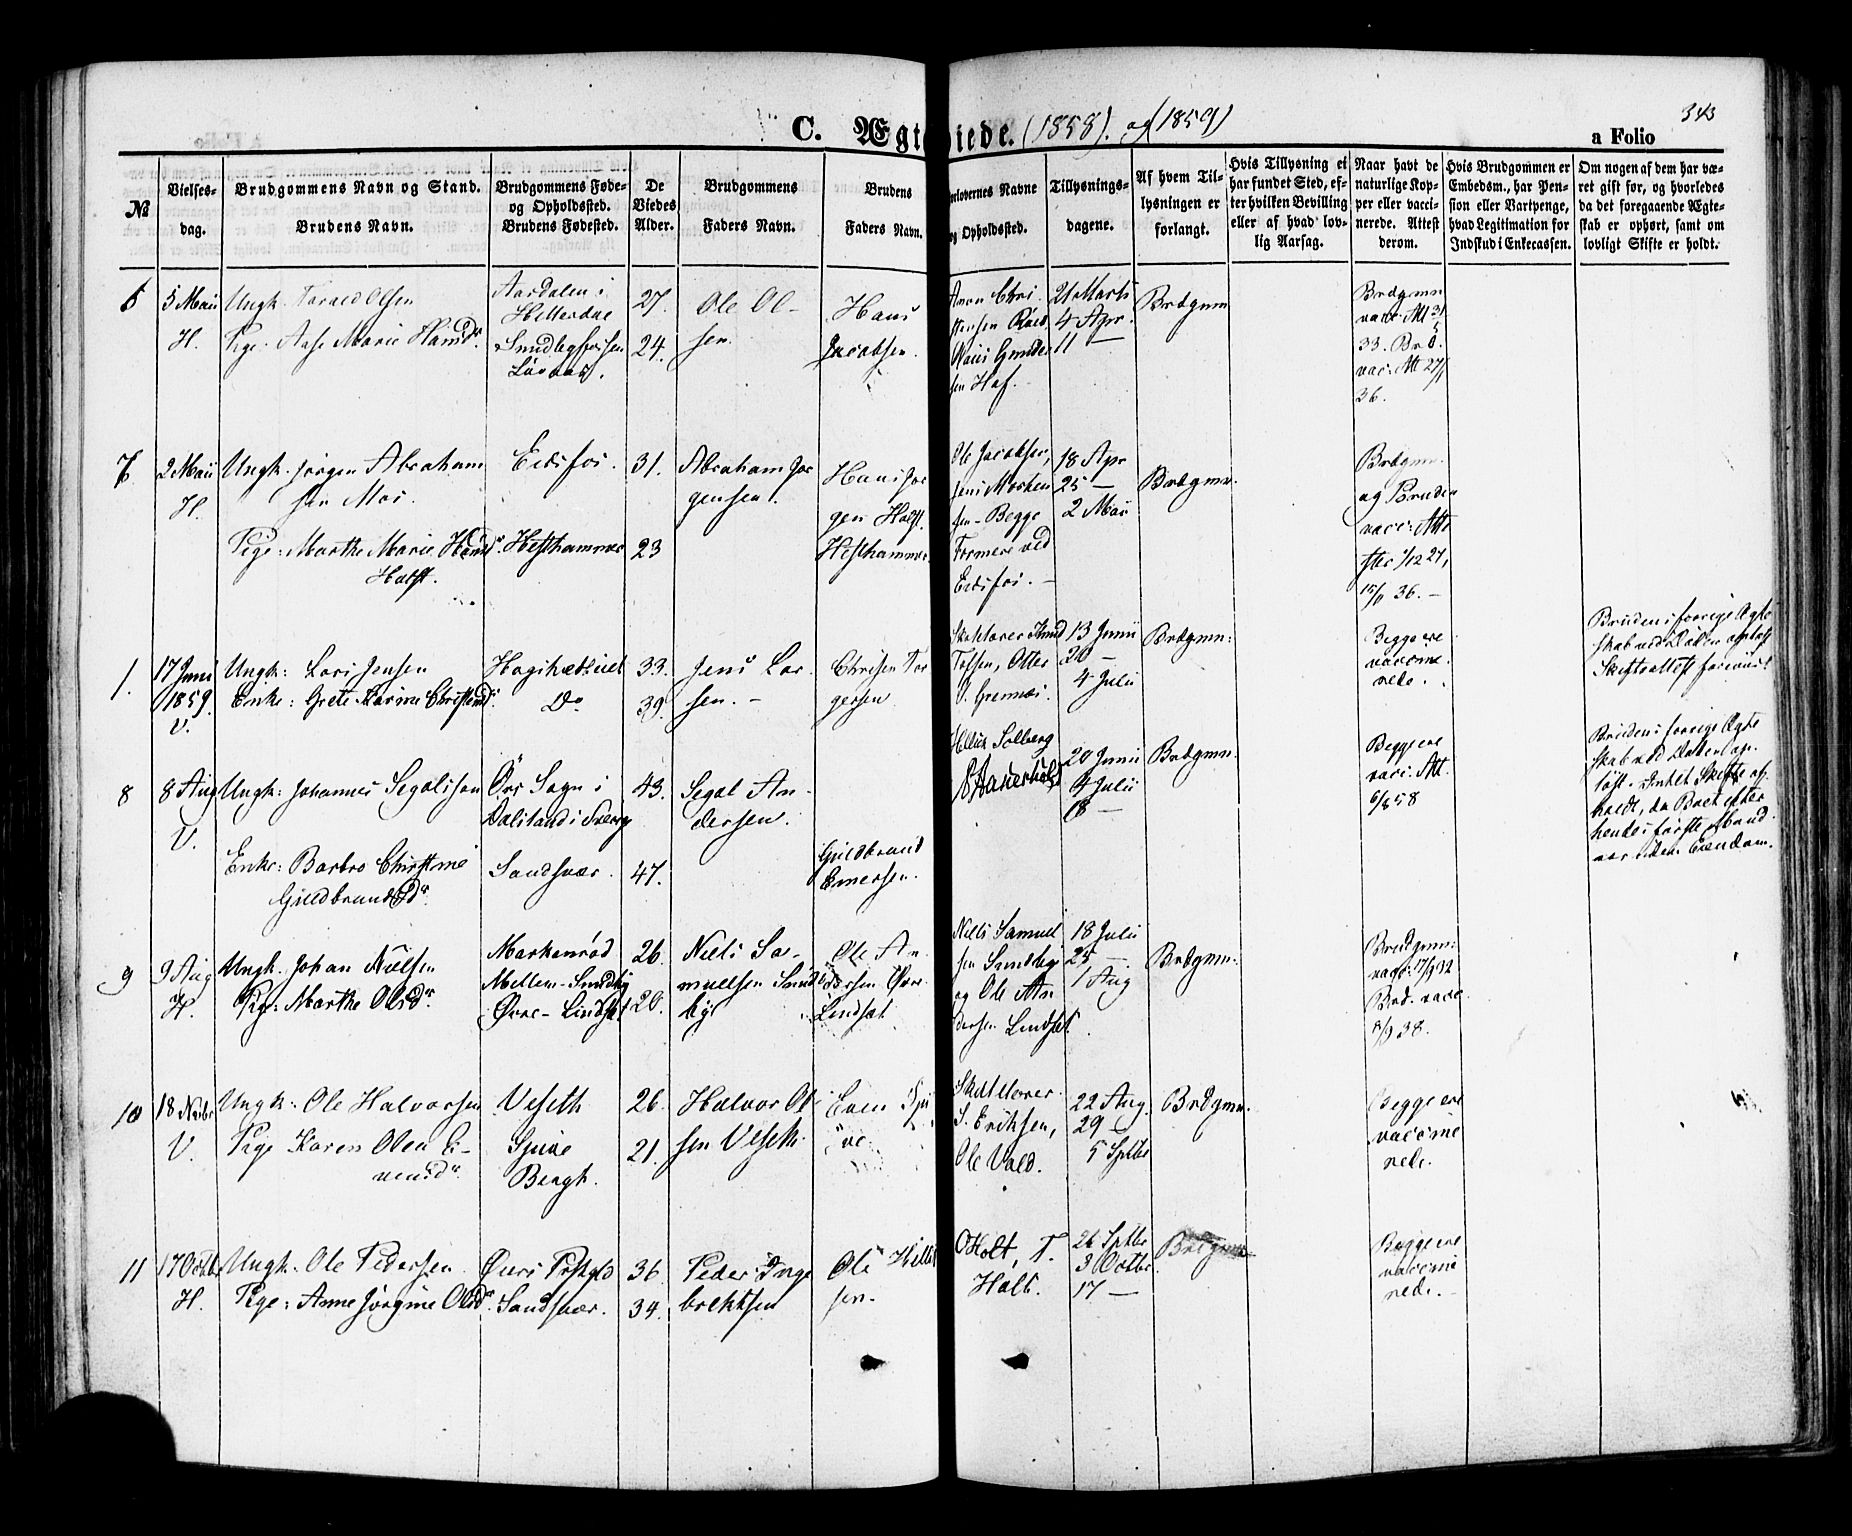 343
C. Ægteviede. (1858). og (1859)
a Folio
№
Vielses-
dag.
Brudgommens Navn og Stand.
Brudens Navn.
Brudgommens Føde-
og Opholdssted.
Brudens Fødested.
De
Viedes
Alder.
Brudgommens
Faders Navn.
Brudens
Faders Navn.
orelovernes Navne
og Opholdssted.
Tillysnings-
dagene.
Af hvem Til-
lysningen er
forlangt.
Hvis Tillysning ei
har fundet Sted, ef-
ter hvilken Bevilling
eller af hvad lov-
lig Aarsag.
Naar havt de
naturlige Kop-
per eller vacci-
nerede. Attest
derom.
Hvis Brudgommen er
Embedsm., har Pen-
sion eller Vartpenge,
hvad Legitimation for
Indskud i Enkecassen.
Om nogen af dem har væ-
ret gift før, og hvorledes
da det foregaaende Ægte-
skab er ophørt, samt om
lovligt Skifte er holdt.
6
5 Maii
H.
Ungk. Olsen
Pige. Aase Marie Hansdr
Aardalen i
Hitterdal
27.
24.
Ole Ol-
sen.
Hans
Jacobsen.
21 Marts
4 Apr.
11 —
Brdgmn
Brdgmn
vacc. Att 31
5
33. Brd.
vac. Att 27/1
36.
7
2 Maii
H.
Ungk. Jørgen Abraham
sen Moe.
Pige: Marthe Marie Hansdr.
Holst.
Eidsfos.
Hesthammer
31.
23
Abraham Jør
gensen.
Hans Jør
gen Holst.
Hesthammer.
Ole Jacobsen,
Jens Morten
sen - Begge
Formere ved
Eidsfos. -
18 Apr
25 —
2 Maii
Brdgmn.
Brdgmn.
og Bruden
vacc: Atte
ster 1/12 27,
36. -
1.
17 Juni
1859.
V.
Ungk: Lars Jensen
Enke: Grete Karine Christensdr
Do
33.
39.
Jens Lar
sen. -
Christen Tor
gersen
13 Junii
20 —
4 Julii
Brdgmn:
Begge ere
vaccine
rede.
Brudens forrige Ægte
skab ved Døden opløst
Skifteattest foreviist
8
8 Aug
V.
Ungk: Johannes Segolsson
Enke: Barbro Christine
Guldbrandsdr.
Örs Sogn i
Dalsland i Sverig
Sandsvær.
43.
47.
Segol An
dersen.
Guldbrand
Emersen.
Solberg
20 Junii
4 Julii
18 —
Brdgmn.
Begge ere
vacc. Att.
6/8 58
Brudens forrige Ægte
skab ved Døden op-
løst. Intet Skifte af
holdt, da Boet efter
hendes første Mand
var uden Eiendom.
9
9 Aug
H.
Ungk. Johan Nielsen
Pig: Marthe Olsdr
Markenrød
Mellem-Sundby
Øvre-Lindset
26.
20.
Niels Sa-
muelsen Sund
by
Ole An
dersen Øvre
Lindset
Niels Samuel
sen Sundby
og Ole An
dersen Lindset.
18 Julii
25 —
1 Aug
Brdgmn:
Brudgmn:
vacc: 17/9 32
Brd. vacc.
8/9 38.
10
18 Novbr
V.
Ungk: Ole Halvorsen
Pige Karen Olea E-
vensdr
Veseth
Berg.
26.
21.
Halvor Ol
sen Veseth
Even
S. Eriksen,
Ole Vold.
22 Aug.
29 —
5 Septbr
Brdgmn.
Begge ere
vaccine
rede.
11
17 Octbr
H.
Ungk. Ole Pedersen
Pige: Anne Jørgine Olsdr.
Sandsvær.
36.
34.
Peder Inge
brektsen
Ole
sen.
O Holt, T.
Holt.
26 Septbr
3 Octbr
17 —
Brdgmn
Begge ere
vaccine
rede.